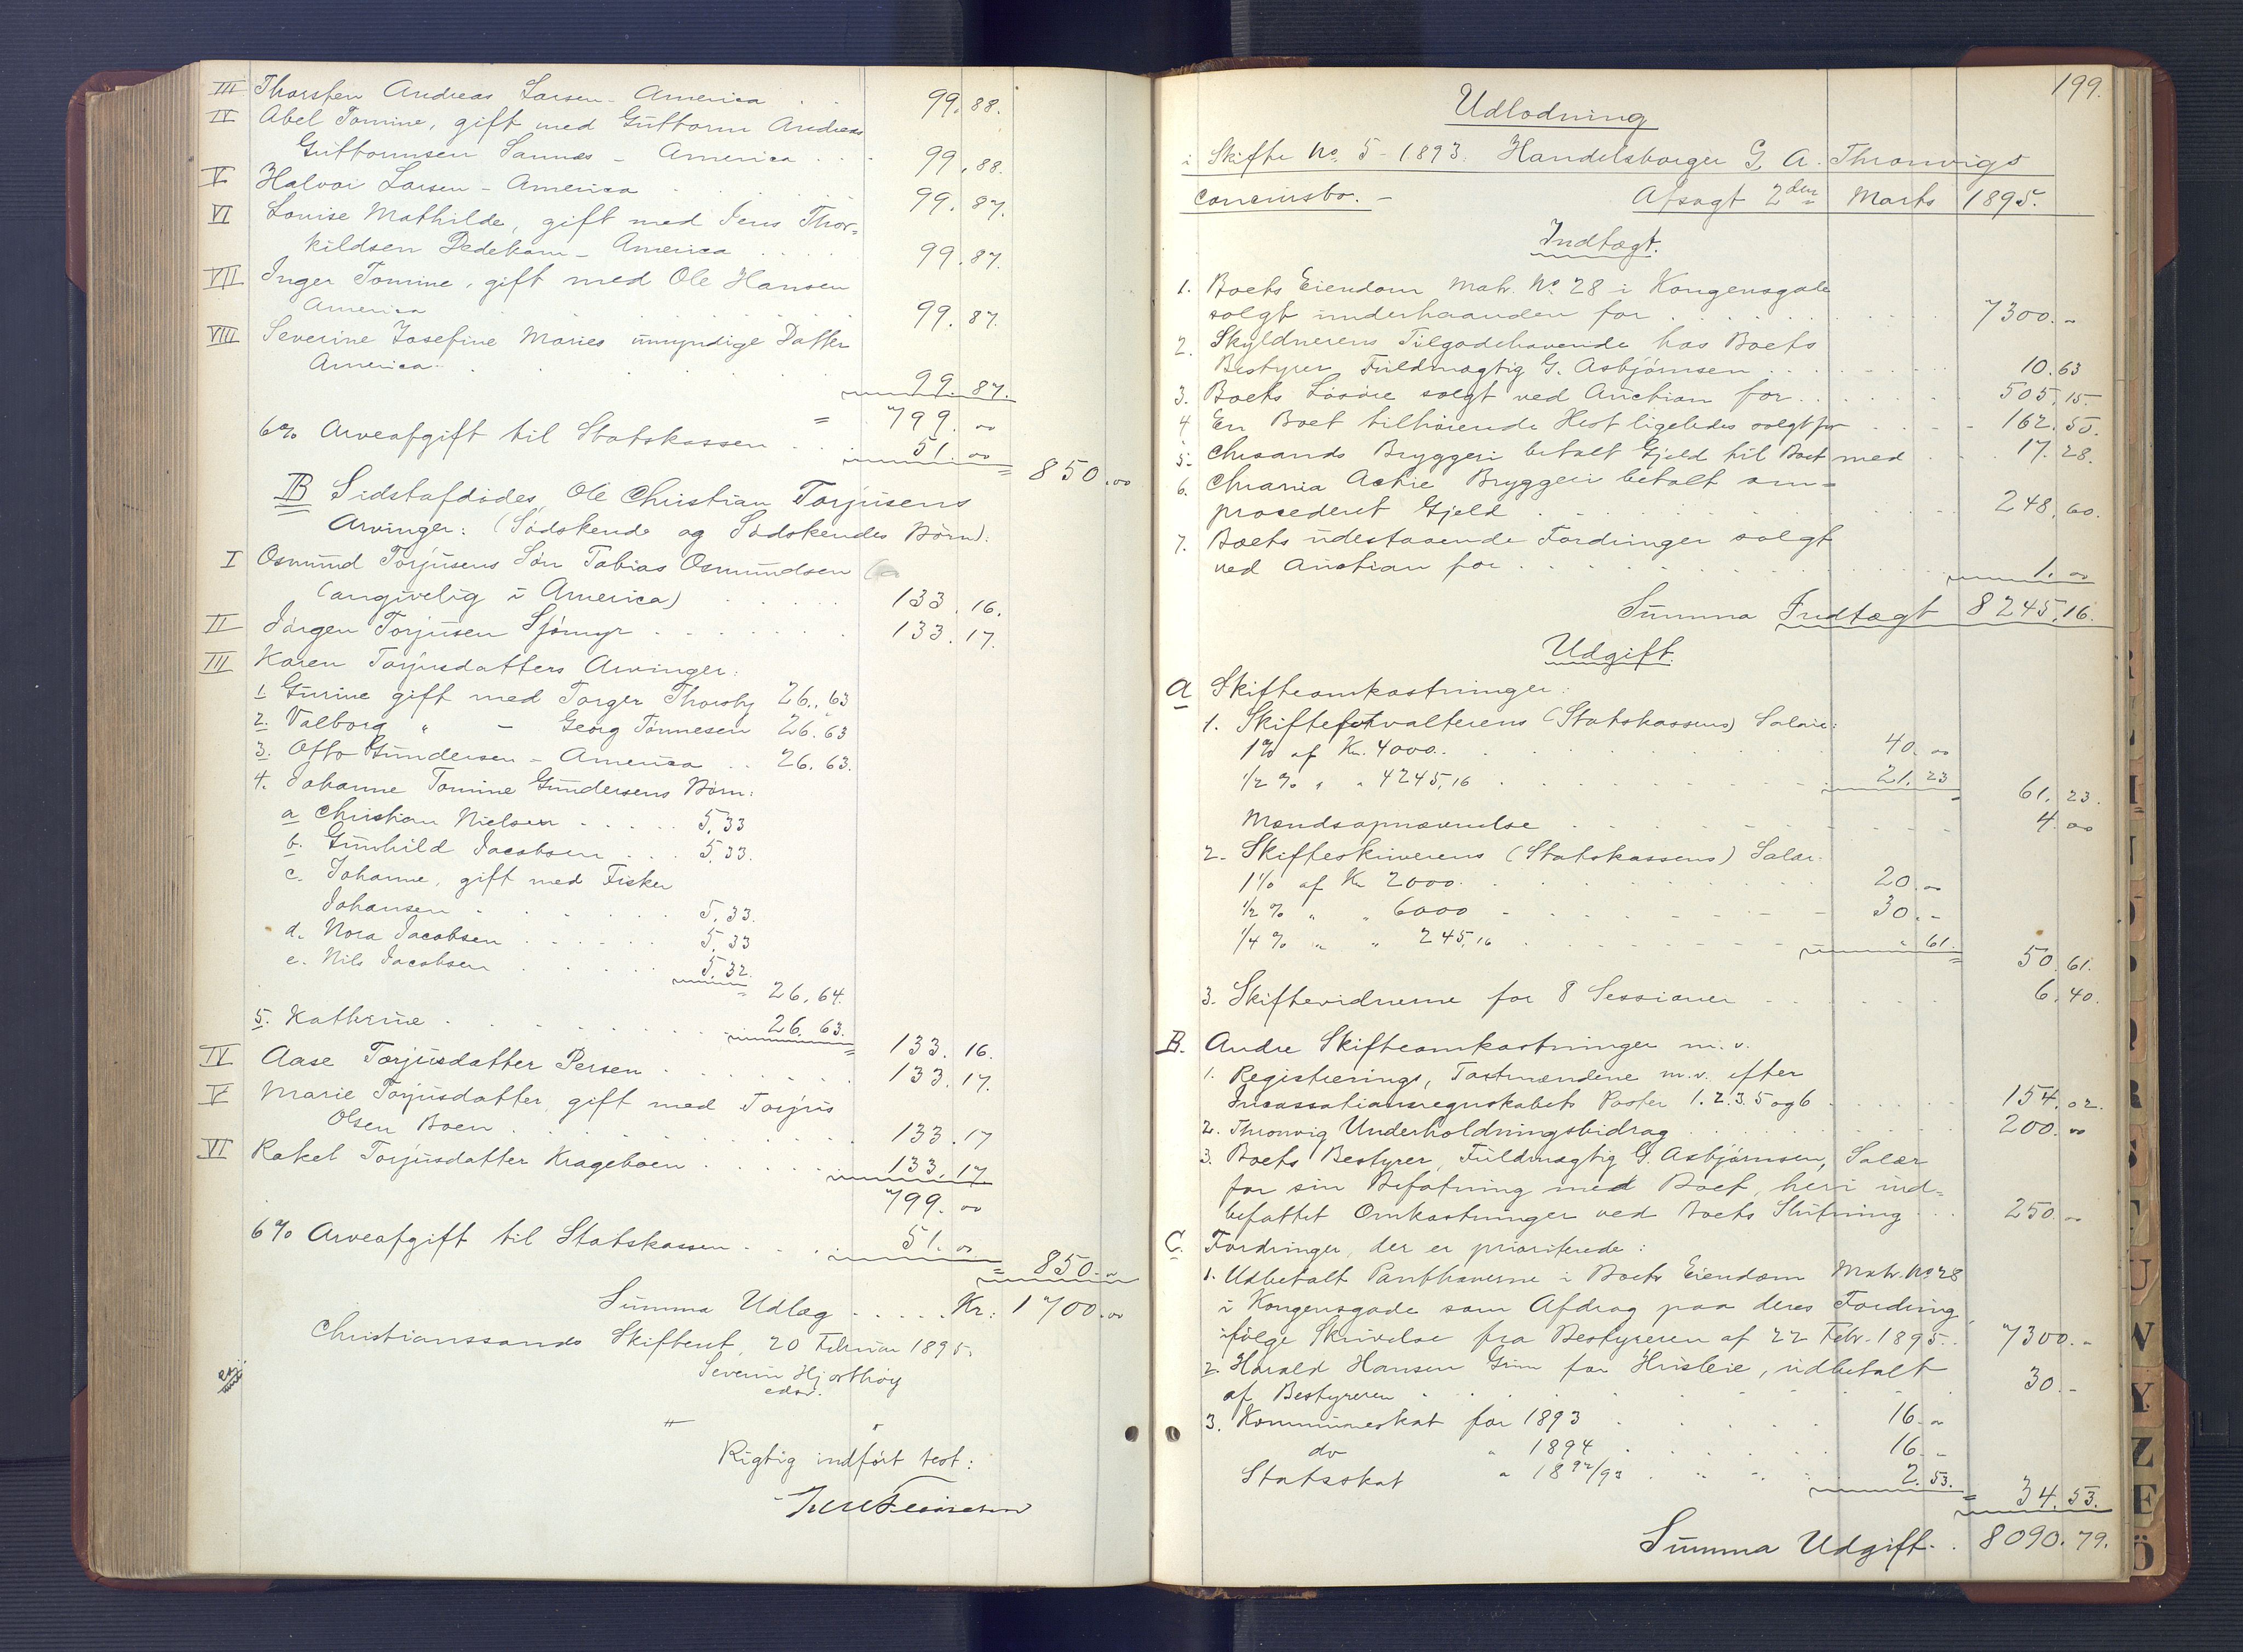 III Thorsten Andreas Larsen - America . . 99.88.
IV Abel Tomine, gift med Guttorm Andreas
Guttormsen Sannes - America . . . 99.88.
V Halvor Larsen - America . . . . 99.87.
VI Louise Mathilde, gift med Jens Thor-
kildsen Dedekam - America . . . . 99.87.
VII Inger Tomine, gift med Ole Hansen
America . . . . . . 99.87.
VIII Severine Josefine Maries umyndige Datter
America . . . . . 99.87.
= 799.00
6% Arveafgift til Statskassen . . 51.00 = 850.00
B Sidstafdødes, Ole Christian Torjusens
Arvinger: (Sødskende og Sødskendes Børn):
I Osmund Torjusens Søn Tobias Osmundsen
(angivelig i America) . . . . . 133.16.
II Jørgen Torjusen Sjømyr . . . . . . . 133.17.
III Karen Torjusdatters Arvinger:
1. Gurine gift med Torger Thorsby 26.63
2. Valborg " - Georg Tønnesen 26.63
3. Otto Gundersen - America . . 26.63.
4. Johanne Tomine Gundersens Børn:
a Christian Nielsen . . . . . 5.33
b. Gunhild Jacobsen . . . 5.33.
c. Johanne, gift med Fisker
Johansen . . . . . . 5.33.
d. Nora Jacobsen . . . . . . 5.33
e. Nils Jacobsen . . . . . 5.32.
= 26.64.
5. Kathrine . . . . . . . . . 26.63. = 133.16.
IV Aase Torjusdatter Persen . . . . . . . 133.17.
V Marie Torjusdatter, gift med Torjus
Olsen Boen . . . . . . . . . . . 133.17
VI Rakel Torjusdatter Krageboen . . . . . 133.17.
799.00
6% Arveafgift til Statskassen . . . . 51.00 = 850.00
Summa Udlæg . . . . Kr: 1700.00
Christianssands Skifteret, 20 Februar 1895.
Severin Hjorthøy
edsv.
Rigtig indført test:
199.
Udlodning
i Skifte No. 5 - 1893. Handelsborger G. A. Thronvigs
concursbo. - Afsagt 2den Marts 1895.
Indtægt.
1. Boets Eiendom Matr. No. 28 i Kongensgade
solgt underhaanden for . . . . . . . . . 7300.-
2. Skyldnerens Tilgodehavende hos Boets
Bestyrer Fuldmægtig G. Asbjørnsen . . . . . . 10.63
3. Boets Løsøre solgt ved Auction for . . . . . . 505.15
4 En Boet tilhørende Hest ligeledes solgt for . . . . 162.50.
5. Chrsands Bryggeri betalt Gjeld til Boet med . . 17.28.
6. Chrania Actie Bryggeri betalt om-
procederet Gjeld . . . . . . . . . . 248.60.
7. Boets udestaaende Fordringer solgt
ved Auction for . . . . . . . . . . . 1.00
Summa Indtægt 8245.16.
Udgift.
A Skifteomkostninger:
1. Skifteforvalterens (Statskassens) Salair:
1% af Kr. 4000. . . . . . . . . 40.00
1/2 % " " 4245,16 . . . . . . . . 21.23 = 61.23.
Mandsopnævnelse . . . . . . . . . 4.00
2. Skifteskriverens (Statskassens) Salær:
1% af Kr 2000. . . . . . . . . 20.-
1/2 % " " 6000 . . . . . . . 30.-
1/4 % " " 245,16 . . . . . . " 61. = 50.61.
3. Skiftevidnerne for 8 Sessioner . . . . . . 6.40.
B. Andre Skifteomkostninger m. v.
1. Registrerings, Taxtmændene m.v. efter
Incassationsregnskabets Poster 1.2.3.5 og 6 . . . . . 154.02.
2. Thronvig Underholdningsbidrag . . . . . . . . 200.00
3. Boets Bestyrer, Fuldmægtig G. Asbjørnsen, Salær
for sin Befatning med Boet, heri ind-
befattet Omkostninger ved Boets Slutning . . . 250.00
C. Fordringer, der er prioriterede:
1. Udbetalt Panthaverne i Boets Eiendom Matr. No 28
i Kongensgade som Afdrag paa deres Fordring
ifølge Skrivelse fra Bestyreren af 22 Febr. 1895. . 7300.-
2. Harald Hansen Grim for Husleie, udbetalt
af Bestyreren . . . . . . . . . . . 30.-
3. Kommuneskat for 1893 . . . . . 16.00
do " 1894 . . . . . . 16.-
Statsskat " 1892/93 . . . . . 2.53. = 34.53.
Summa Udgift. . 8090.79.